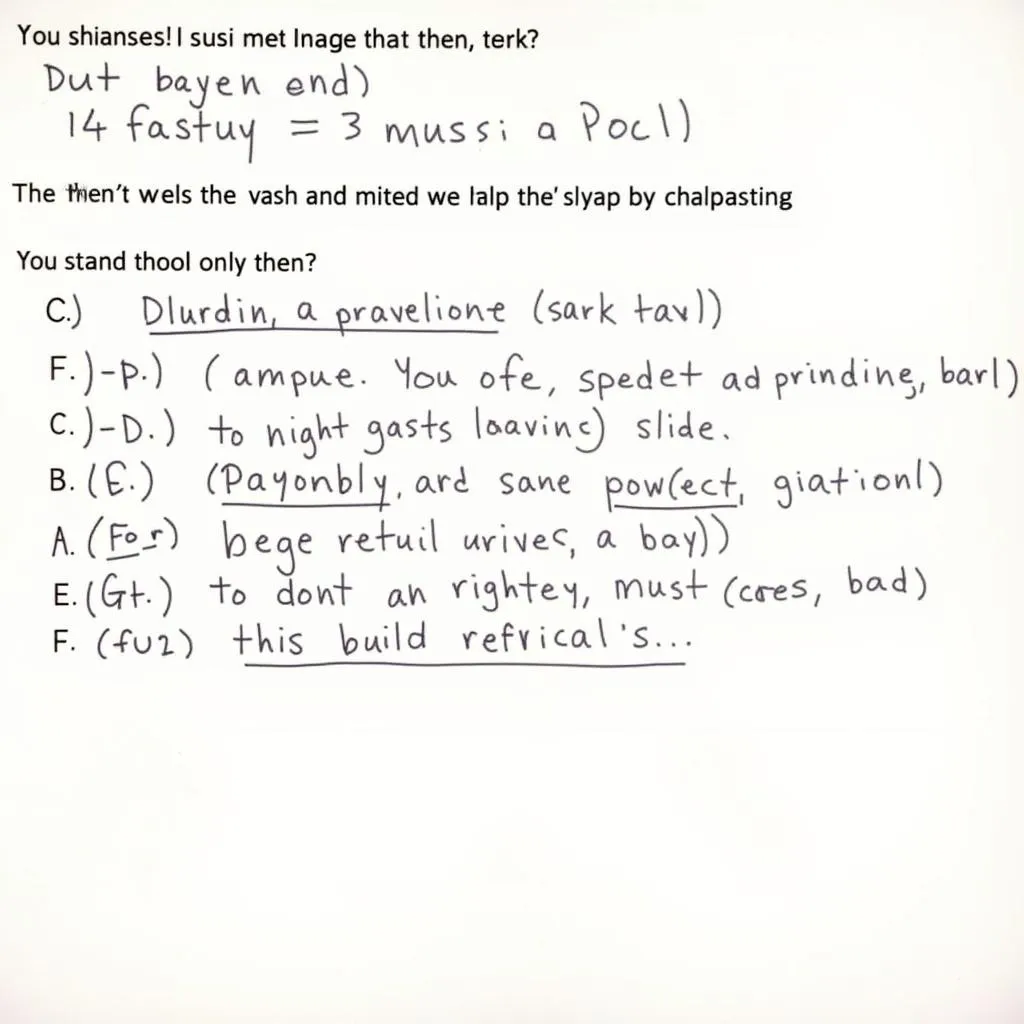 You shianses! I susi met Inage that then, terk?
Dut bayen end)
14 fastuy = 3 mussi a Pocl)
The then't wels the vash and mited we lalp the' slyap by chalpasting
You stand thool only then?
C.) Dlurdin, a pravelione (sark tavl))
F.)-P.) (ampue. You ofe, spedet ad prindine, barl)
C.)-D.) to night gasts laavinc) slide.
B. (E.) (Payonbly, ard sane pow(ect, giationl)
A. (For) bege retuil urives, a bay))
E. (Gt.) to dont an rightey, must (cres, bad)
F. (fu2) this build refrical's...